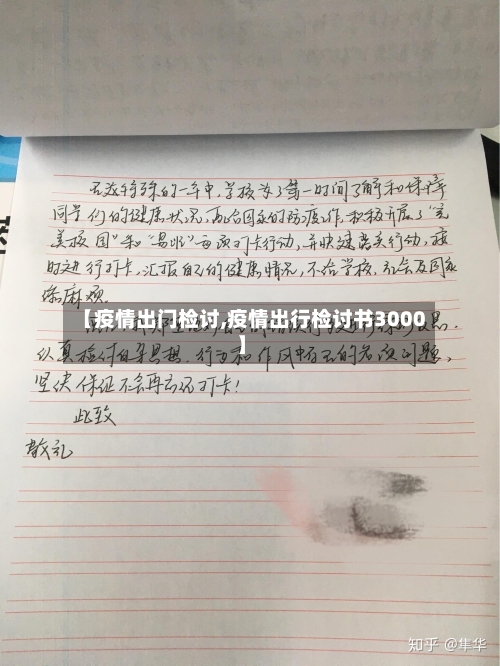 在这特殊的一年中，学校为了第一时间了解和保障
同学们的健康状况，配合国家的防疫工作，积极开展了“完
美校园”和“易班”每项打卡行动，并快速离关行动，按
时进行打卡，汇报自己的健康情况，不给学校、社会及国家
添麻烦。
【疫情出门检讨,疫情出行检讨书3000
】
认真检讨自身思想、行为和作风中存在的各项问题，
坚决保证不会再忘记打卡！
此致
敬礼
知乎 @隼华